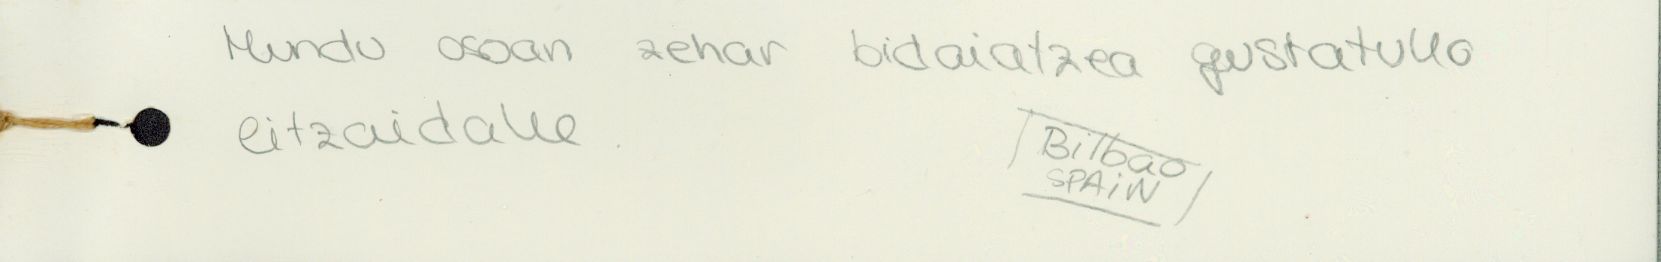 Mundu osoan zehar bidaiatzea gustatuko
litzaidake.
Bilbao
SPAiN